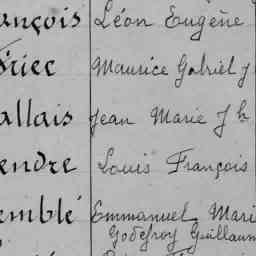 ançois Léon Eugène
riec Maurice Gabriel J
allais Jean Marie Jh
endre Louis François
emblé Emmanuel Mari
Godefroy Guillaum